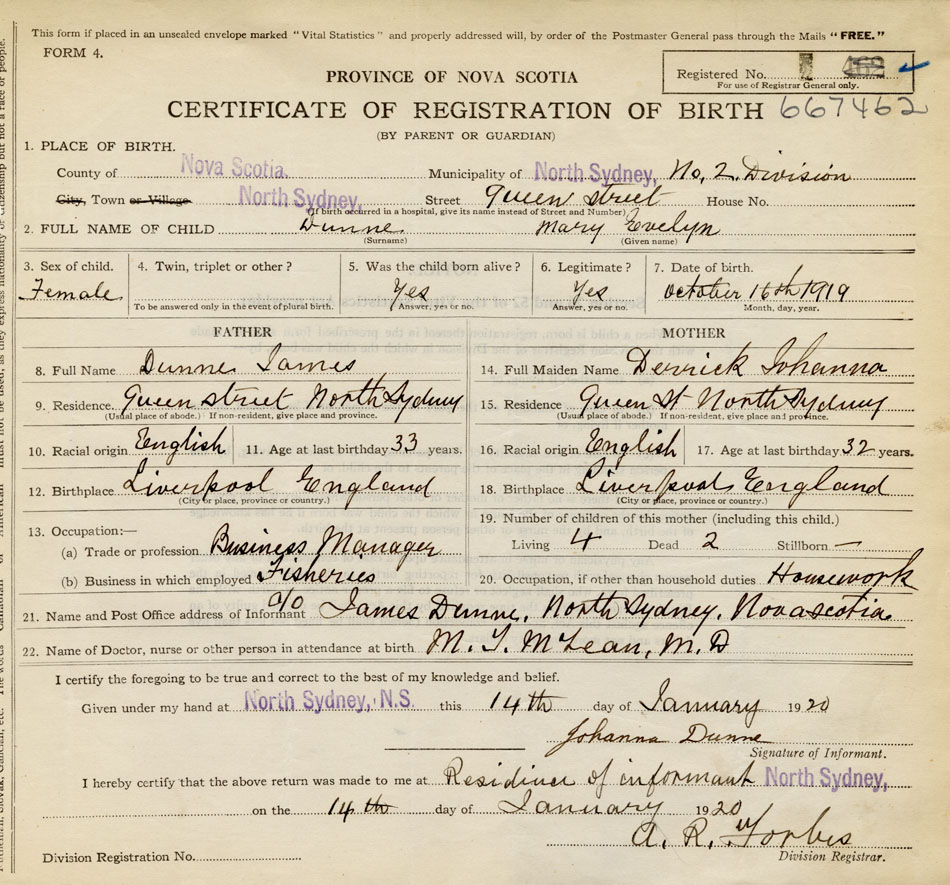 This form if placed in an unsealed envelope marked "Vital Statistics" and properly addressed will, by order of the Postmaster General pass through the Mails "FREE."
FORM 4.
Registered No. 462
For use of Registrar General only.
PROVINCE OF NOVA SCOTIA
CERTIFICATE OF REGISTRATION OF BIRTH 667462
(BY PARENT OR GUARDIAN)
1. PLACE OF BIRTH.
County of Nova Scotia. Municipality of North Sydney, No, 2. Division
City, Town or Village North Sydney, Street Queen street House No.
(If birth occurred in a hospital, give its name instead of Street and Number)
2. FULL NAME OF CHILD Dunne Mary Evelyn
(Surname) (Given name)
3. Sex of child. 4. Twin, triplet or other? 5. Was the child born alive? 6. Legitimate? 7. Date of birth.
Female Yes Yes October 16th 1919
To be answered only in the event of plural birth. Answer, yes or no. Answer, yes or no. Month, day, year.
FATHER MOTHER
8. Full Name Dunne James 14. Full Maiden Name Derrick Johanna
9. Residence. Queen street North Sydney 15. Residence Queen St North Sydney
(Usual place of abode.) If non-resident, give place and province. (Usual place of abode.) If non-resident, give place and province.
10. Racial origin English 11. Age at last birthday 33 years. 16. Racial origin English 17. Age at last birthday 32 years.
12. Birthplace Liverpool England 18. Birthplace Liverpool England
(City or place, province or country.) (City or place, province or country.)
13. Occupation:— 19. Number of children of this mother (including this child.)
(a) Trade or profession Business Manager Living 4 Dead 2 Stillborn —
(b) Business in which employed Fisheries 20. Occupation, if other than household duties Housework
21. Name and Post Office address of Informant c/o James Dunne, North Sydney, Nova scotia
22. Name of Doctor, nurse or other person in attendance at birth M. T. McLean, M.D
I certify the foregoing to be true and correct to the best of my knowledge and belief.
Given under my hand at North Sydney, N.S. this 14th day of January 1920
Johanna Dunne
Signature of Informant.
I hereby certify that the above return was made to me at Residince of informant North Sydney,
on the 14th day of January 1920
A. R. Forbes
Division Registrar.
Division Registration No.